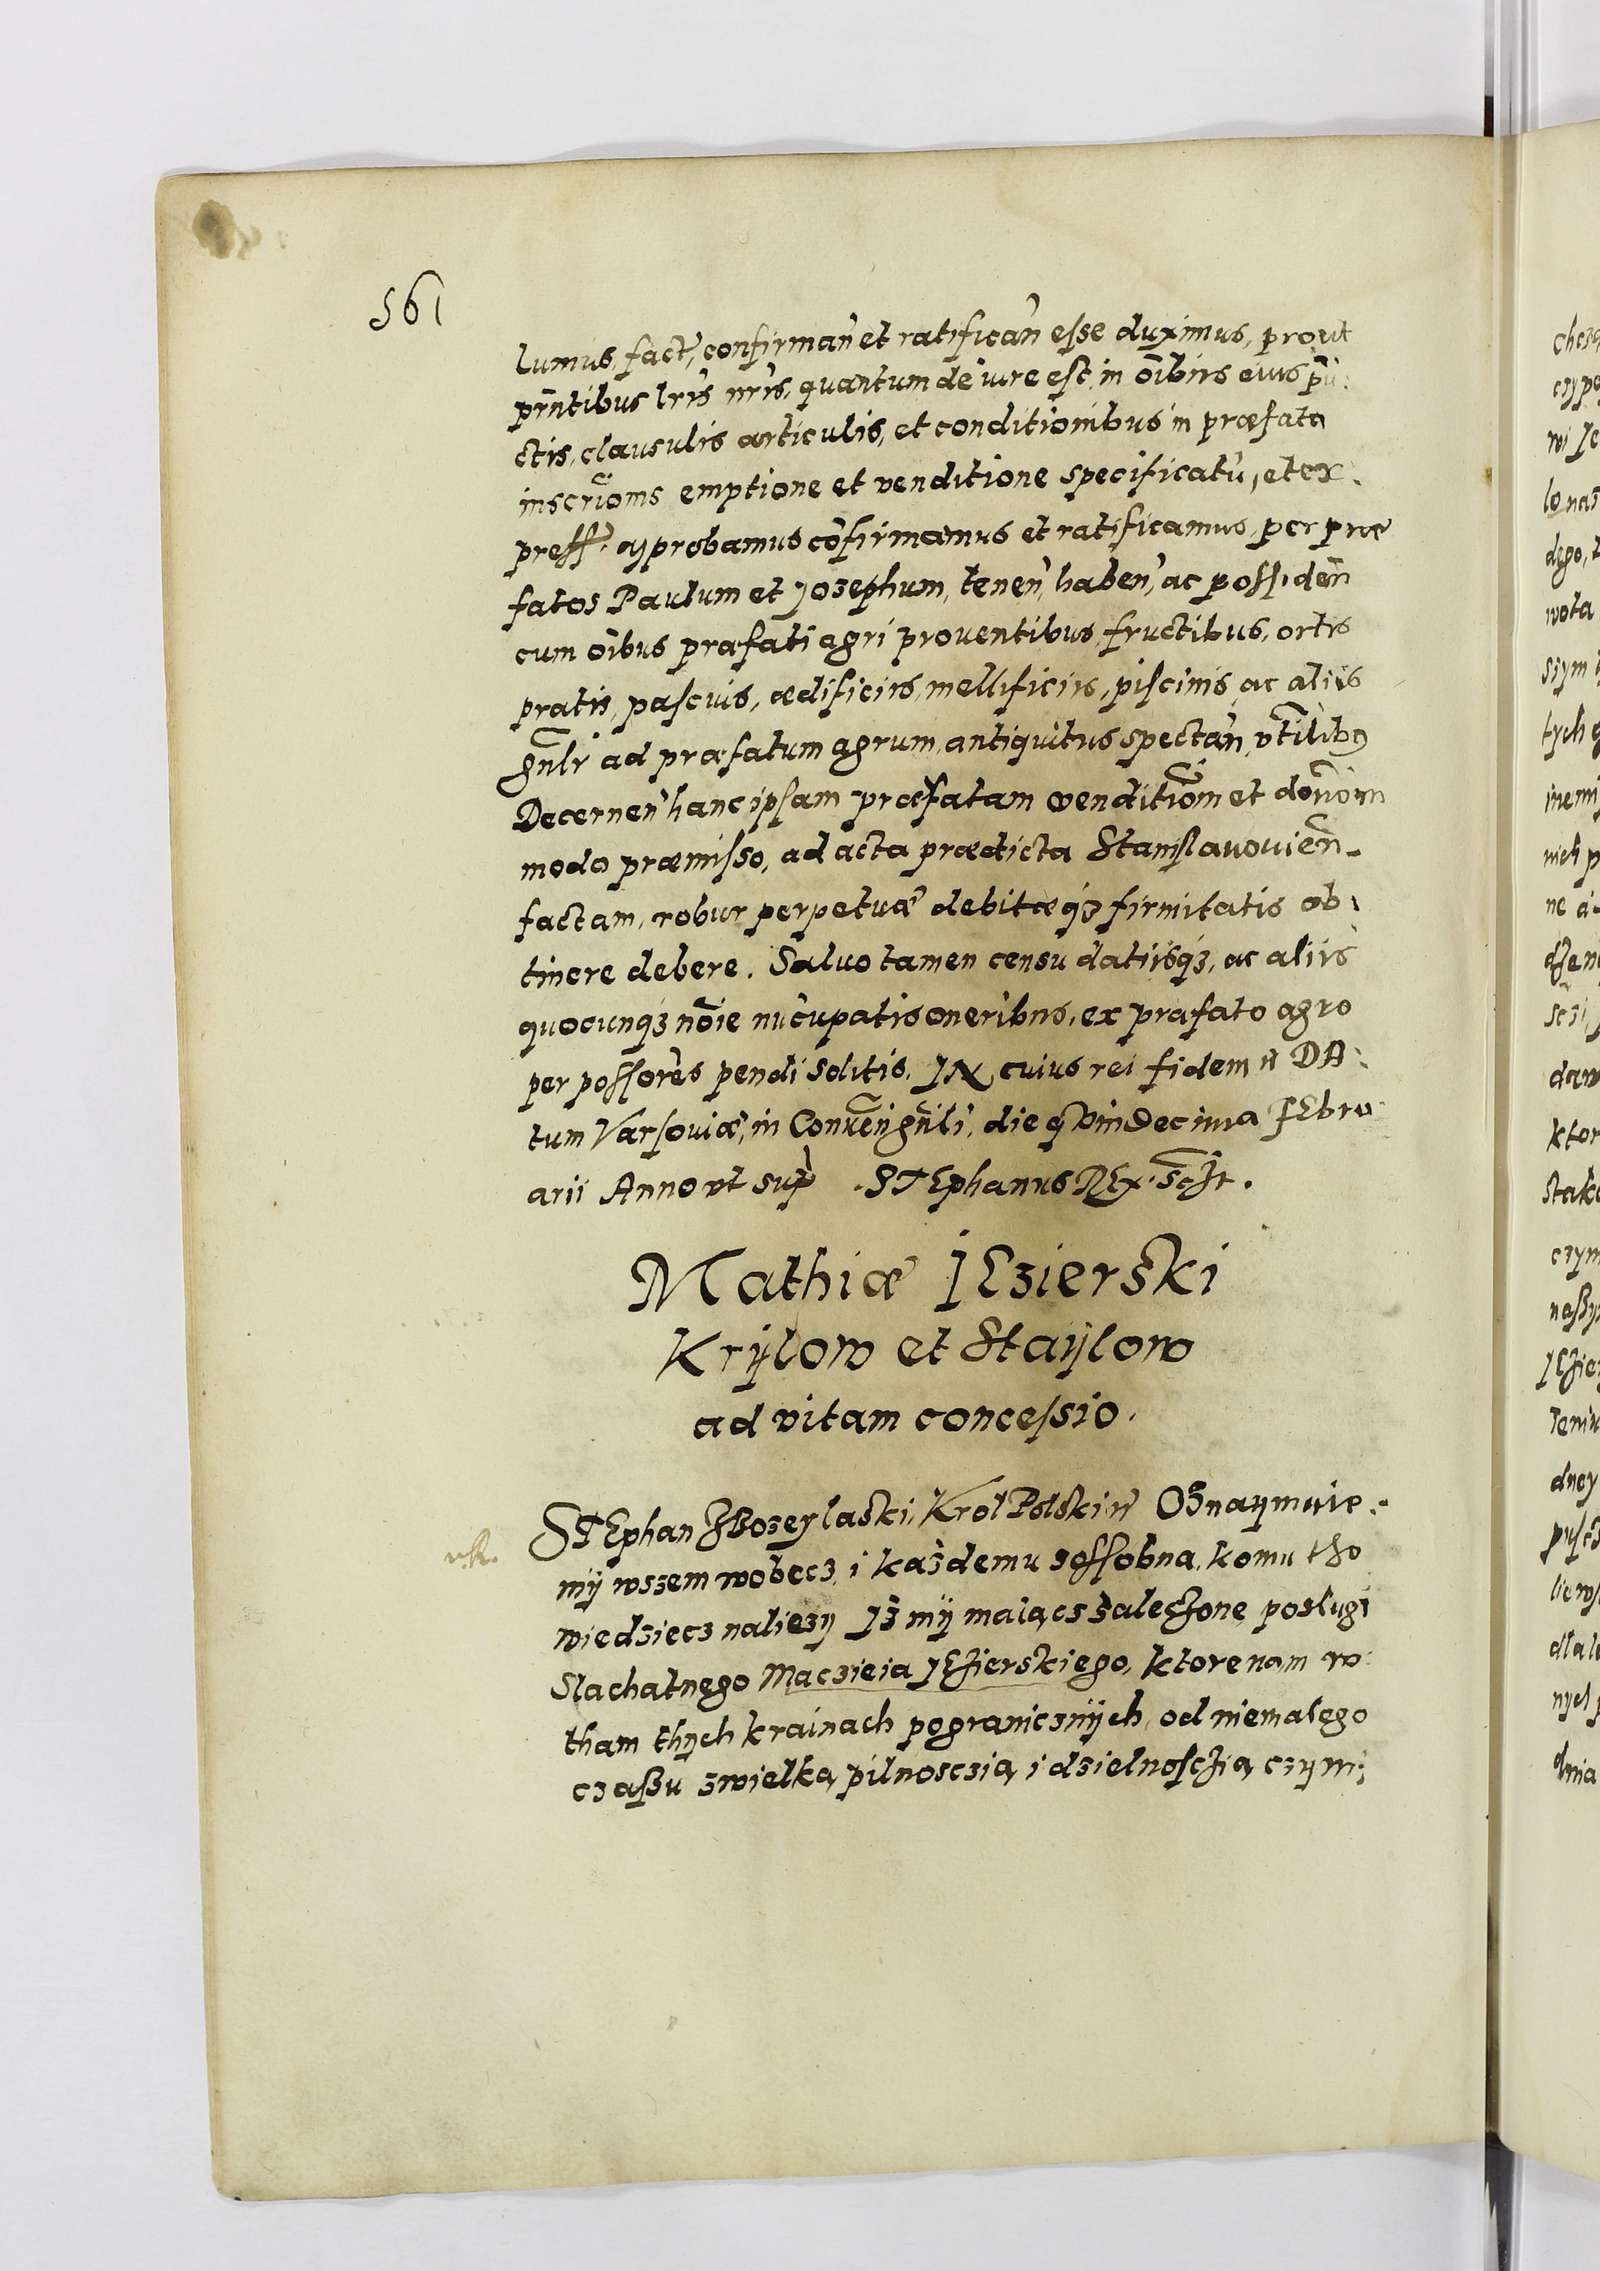 561
lumus, fact, confirman̄ et ratifican̄ esse duximus, prout
prñtibus lrīs nrīs, quantum de iure est, in oībus eius pū:
ctis, clausulis articulis, et conditionibus in præfata
inscrīoms emptione et venditione specificatū, et ex:
press: approbamus cōfirmamus et ratificamus, per præ
fatos Paulum et Josephum, tenen̄, haben̄, ac possiden̄
cum oībus præfati agri prouentibus, fructibus, ortis
pratis, pascuis, ædificiis, mellificiis, piscinis, ac aliis
gñlr ad præfatum agrum, antiquitus spectan̄, vtīlibq
Decernen̄ hanc ipsam præfatam venditiom et donom
modo præmisso, ad acta prædicta Stanislauouien̄.
factam, robur perpetuæ debitæq3 firmitatis ob:
tinere debere. Saluo tamen censu datiisq3, ac aliis
quocunq3 nōie nūcupatis oneribus, ex præfato agro
per possores pendi solitis. IN cuius rei fidem īt DA:
tum Varsouiæ, in Conuen gñli, die qVinDecima fEbru
arii Anno vt sup̄ . STEphanus REx. sc3t.
Mathiæ JE3ierski
Krÿlow et Staÿlow
ad vitam concessio.
STEphan 3Bo3ey laski, Krol Polski īt O3naymuie:
mÿ ws3em wobec3, i ka3demu 3ossobna, komu tho
wied3iec3 nalie3y J3 mÿ maiąc3 3alec3one poslugi
Slachatnego Mac3ieia JE3ierskiego, ktore nam w
tham thÿch krainach pogranic3nÿch, od niemalego
c3aßu 3wielką pilnosc3ią i d3ielnosc3ią c3ym: